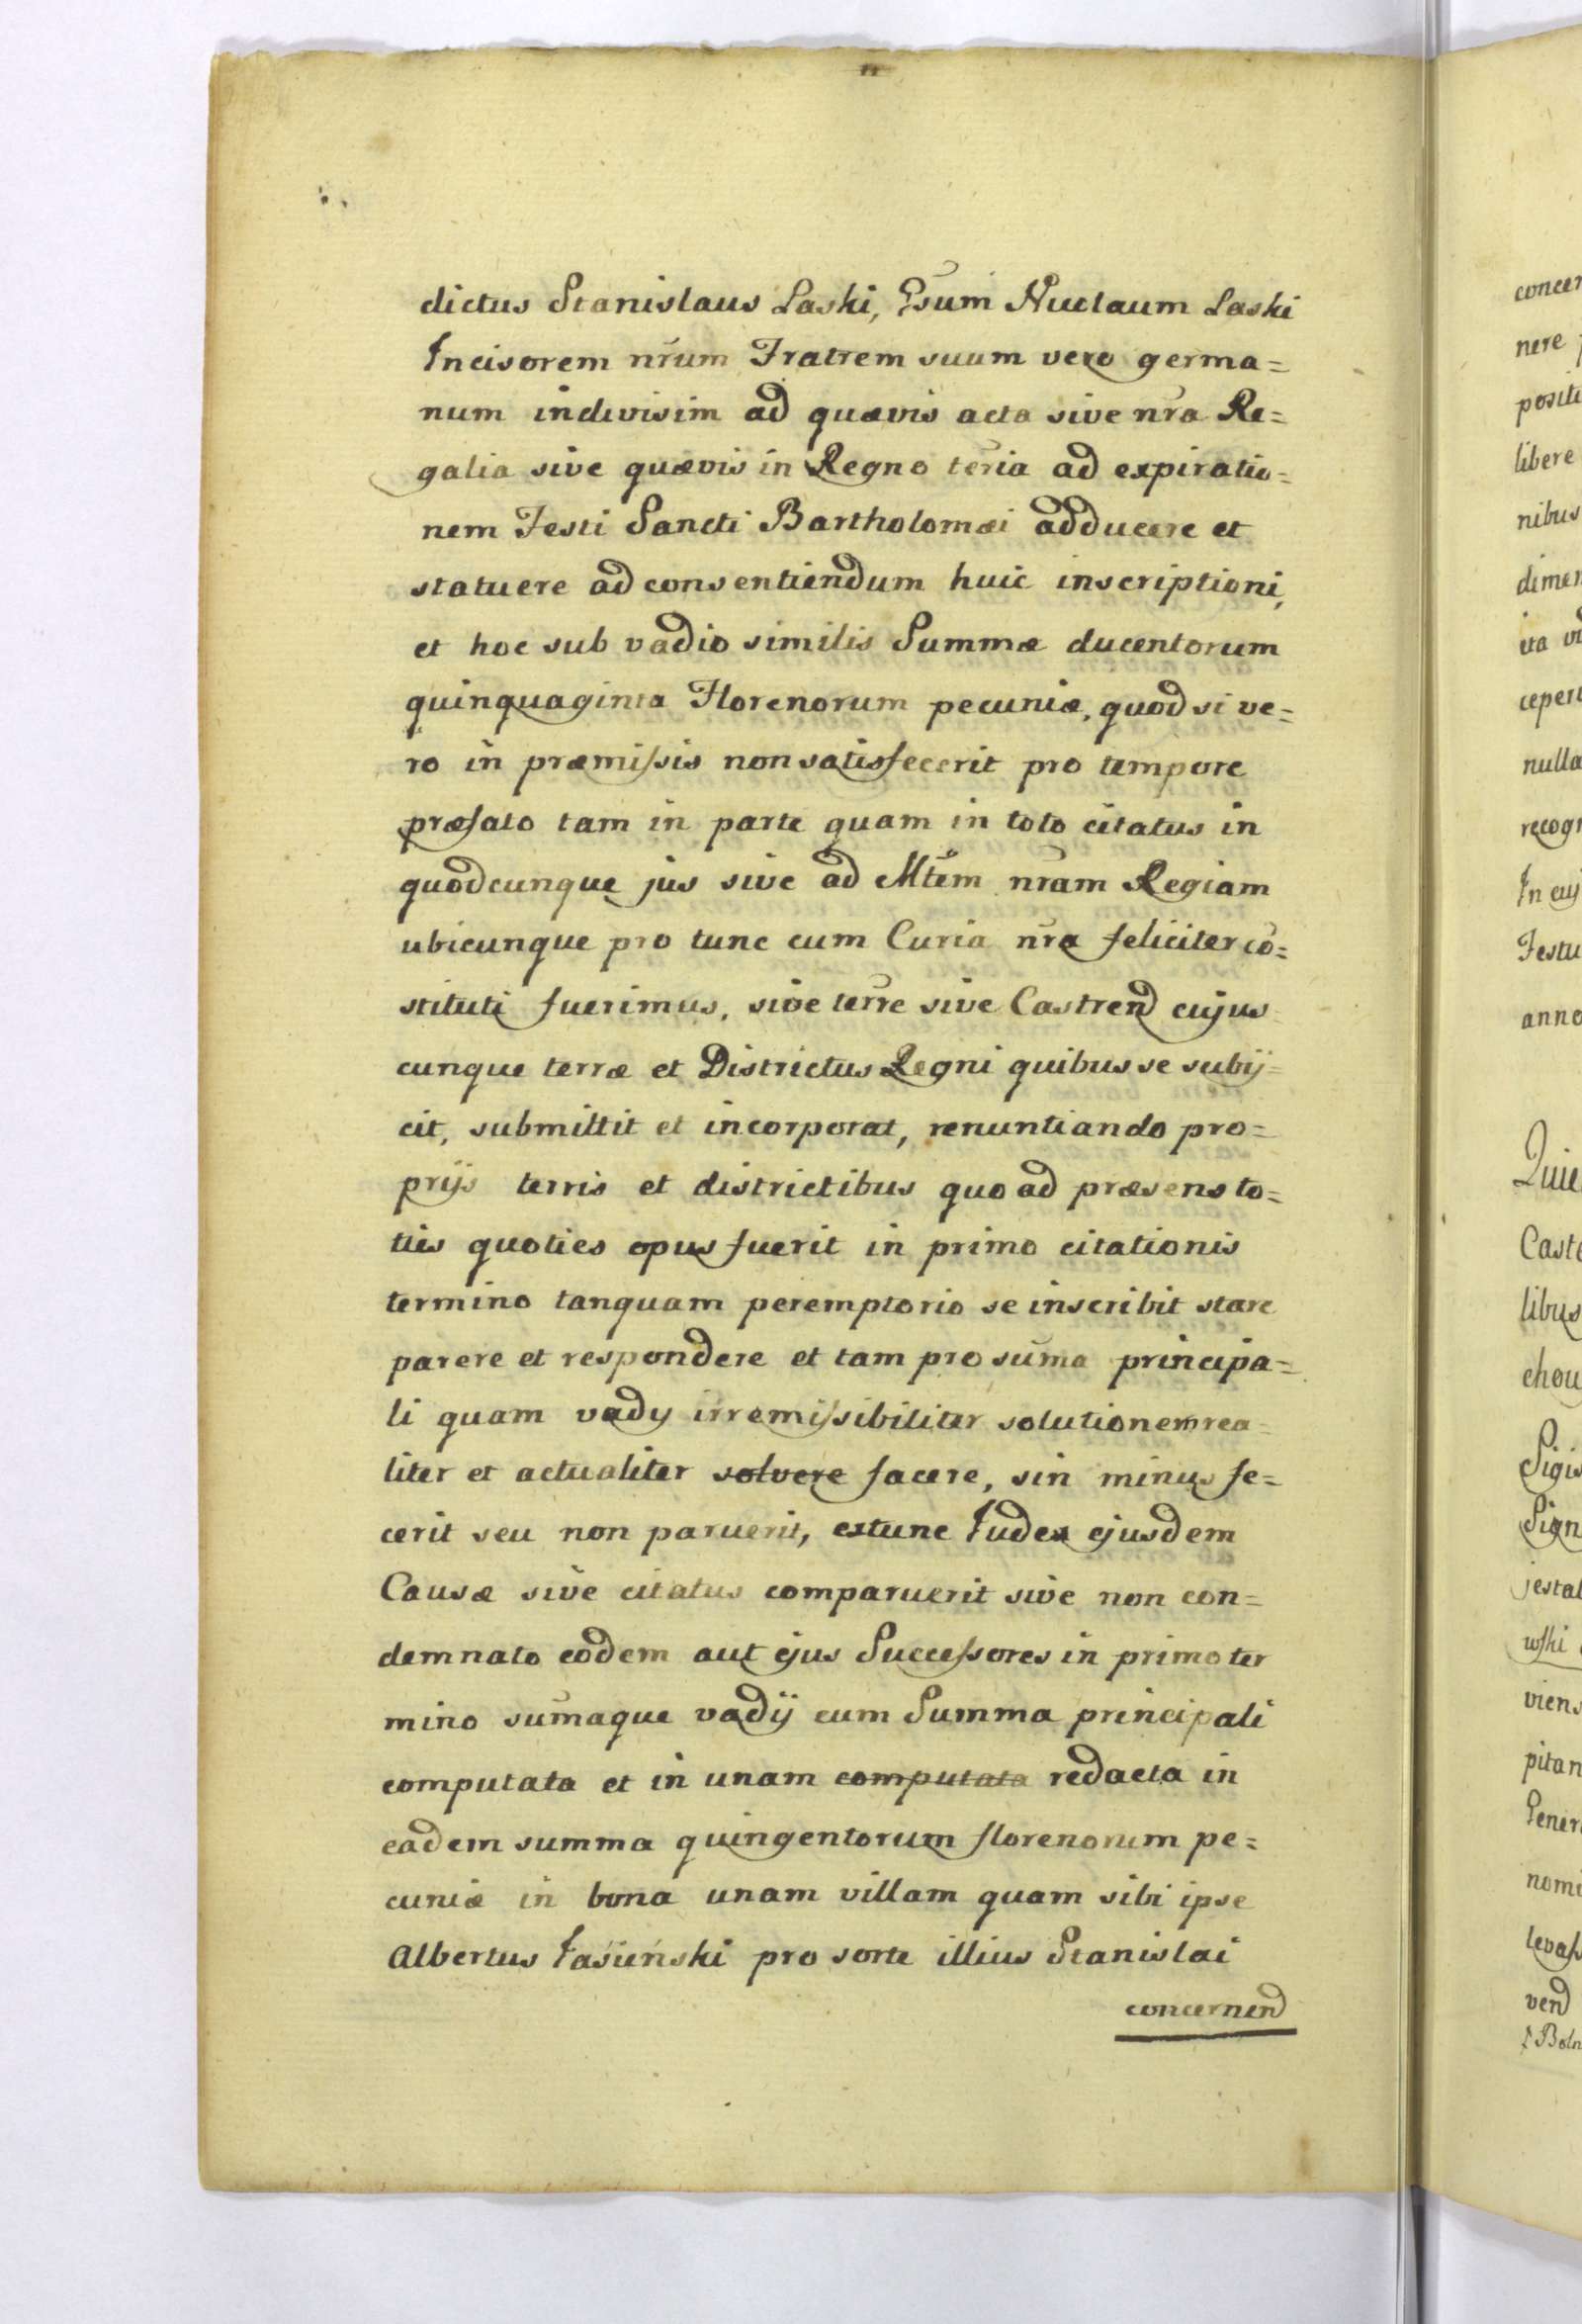 dictus Stanislaus Laski, Gsum Nuclaum Laski
Incisorem nrum Fratrem suum vero germa=
num indivisim ad quævis acta sive nra Re=
galia sive quævis in Regno teria ad expiratio=
nem Festi Sancti Bartholomæi adducere et
statuere ad consentiendum huic inscriptioni,
et hoc sub vadio similis Summæ ducentorum
quinquaginta Florenorum pecuniæ, quod si ve=
ro in præmissis non satisfecerit pro tempore
præfato tam in parte quam in toto citatus in
quodcunque jus sive ad Mtem nram Regiam
ubicunque pro tunc cum Curia nra feliciter cō=
stituti fuerimus, sive terre sive Castrend cujus
cunque terræ et Districtus Regni quibus se subij=
cit, submittit et incorporat, renuntiando pro=
prijs terris et districtibus quo ad præsens to=
ties quoties opus fuerit in primo citationis
termino tanquam peremptorio se inscribit stare
parere et respondere et tam pro suma principa=
li quam vady irremissibiliter solutionem rea=
liter et actualiter solvere facere, sin minus fe=
cerit seu non paruerit, extunc Iudex ejusdem
Causæ sive citatus comparuerit sive non con=
demnato eodem aut ejus Successores in primo ter
mino sumaque vadij cum Summa principali
computata et in unam computata redacta in
eadem summa quingentorum florenorum pe=
cuniæ in bona unam villam quam sibi ipse
Albertus Jasieński pro sorte illius Stanislai
concernend
concer
nere
positi
libere
nibus
dimen
ita
ceper
nulla
recogn
In cuj
Festu
anno
Quie
Caste
libus
chou
Sigis
Sign
jestat
wski
viens
pitan
Gener
nomi
levas
vend